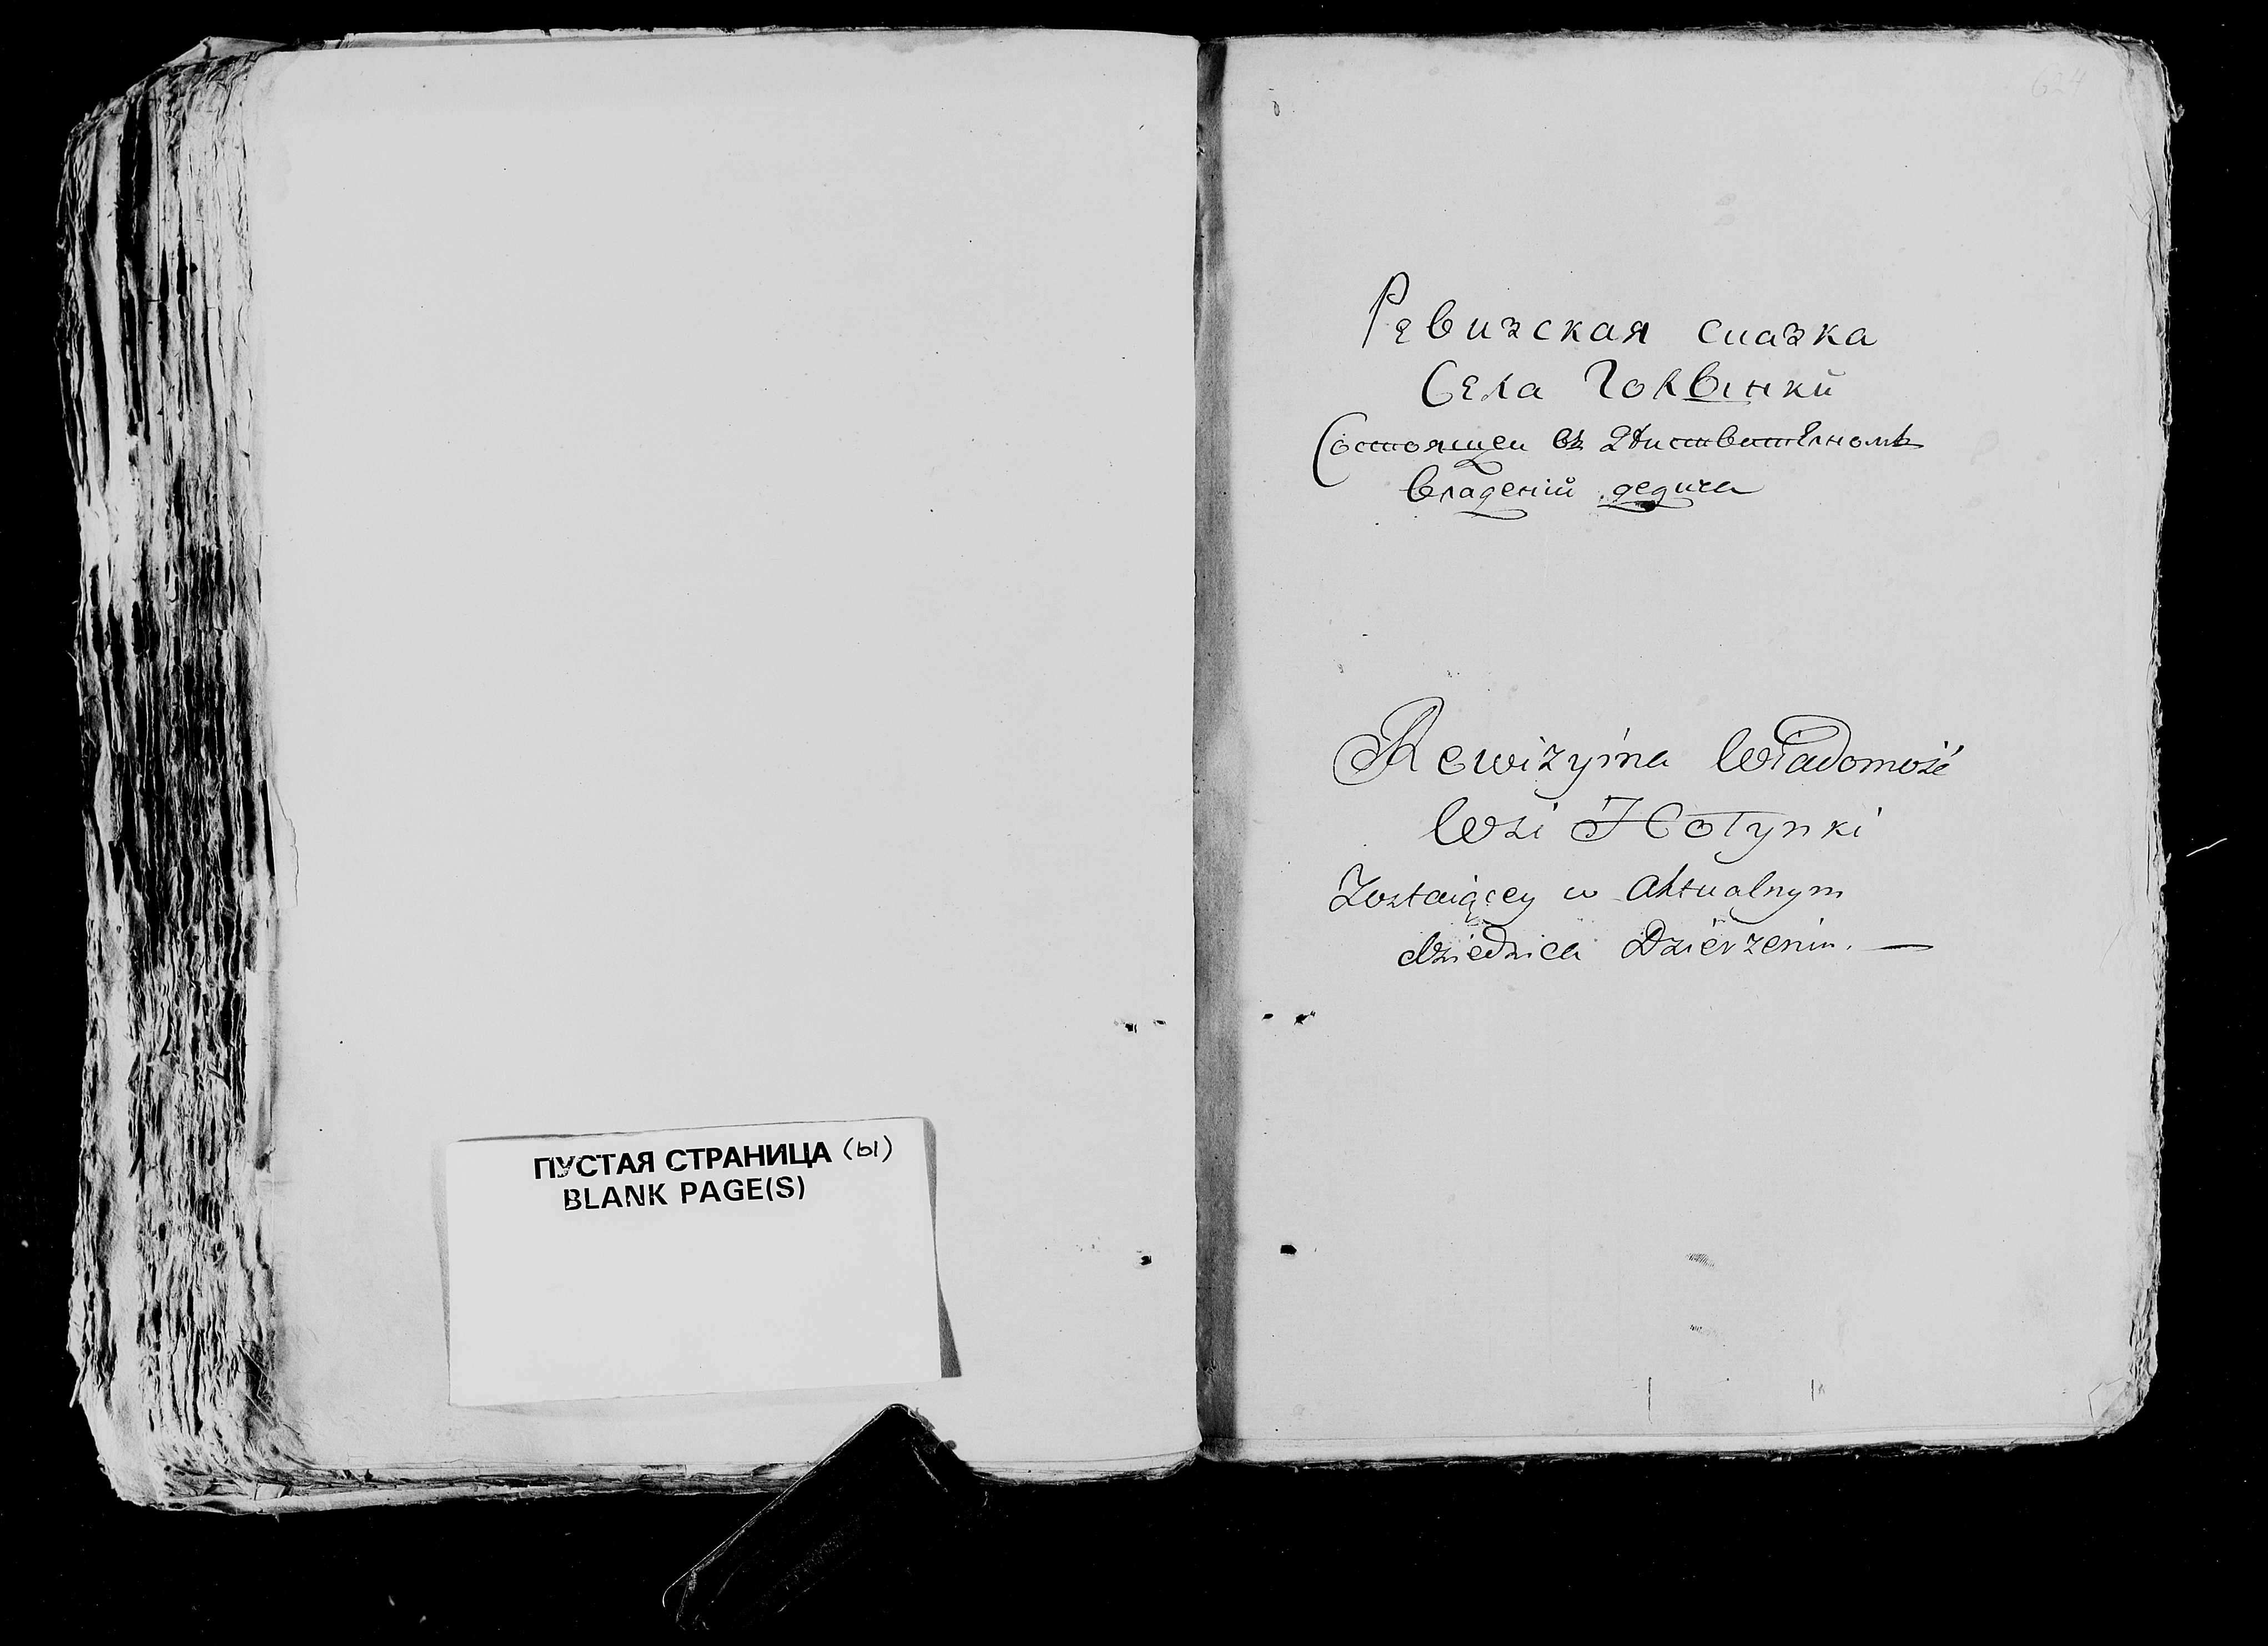 ПУСТАЯ СТРАНИЦА (Ы)
BLANK PAGE(S)
624
Ревизская сказка
Села Голынки
Состоящеи въ Дѣиствителномъ
владеніи дедича
Rewizyina Wiadomość
Wsi Hołynki
Zostaiącey w Aktualnym
dziedzica Dzierżeniu. —